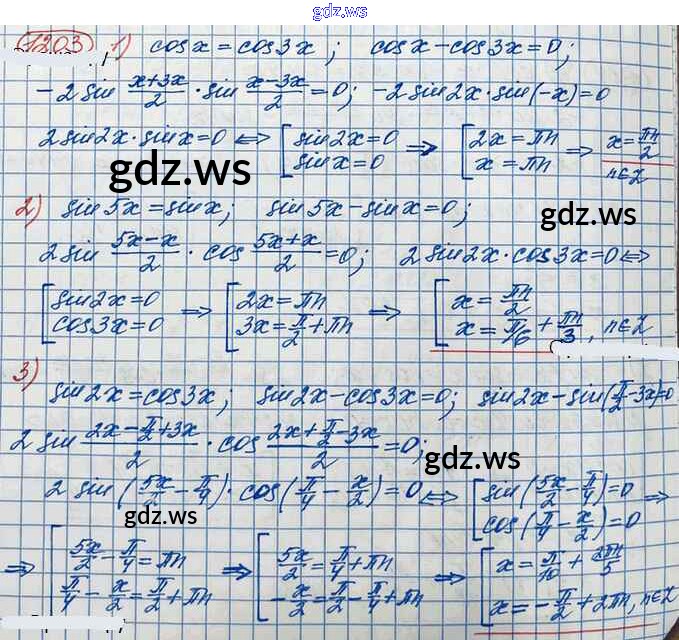 gdz.ws
1203 1) cos x = cos 3x ; cos x - cos 3x = 0;
-2 sin (x+3x)/2 · sin (x-3x)/2 = 0; -2 sin 2x · sin(-x) = 0
2 sin 2x · sin x = 0 ⇔ [ sin 2x = 0 ; sin x = 0 ⇒ [ 2x = πn ; x = πn ⇒ x = πn/2 n∈Z
gdz.ws
gdz.ws
2) sin 5x = sin x; sin 5x - sin x = 0;
2 sin (5x-x)/2 · cos (5x+x)/2 = 0; 2 sin 2x · cos 3x = 0 ⇔
[ sin 2x = 0 ; cos 3x = 0 ⇒ [ 2x = πn ; 3x = π/2 + πn ⇒ [ x = πn/2 ; x = π/6 + πn/3, n∈Z
3) sin 2x = cos 3x; sin 2x - cos 3x = 0; sin 2x - sin(π/2 - 3x) = 0
2 sin (2x - π/2 + 3x)/2 · cos (2x + π/2 - 3x)/2 = 0;
gdz.ws
2 sin (5x/2 - π/4) · cos (π/4 - x/2) = 0 ⇔ [ sin (5x/2 - π/4) = 0 ; cos (π/4 - x/2) = 0 ⇒
gdz.ws
⇒ [ 5x/2 - π/4 = πn ; π/4 - x/2 = π/2 + πn ⇒ [ 5x/2 = π/4 + πn ; -x/2 = π/2 - π/4 + πn ⇒ [ x = π/10 + 2πn/5 ; x = -π/2 + 2πn, n∈Z